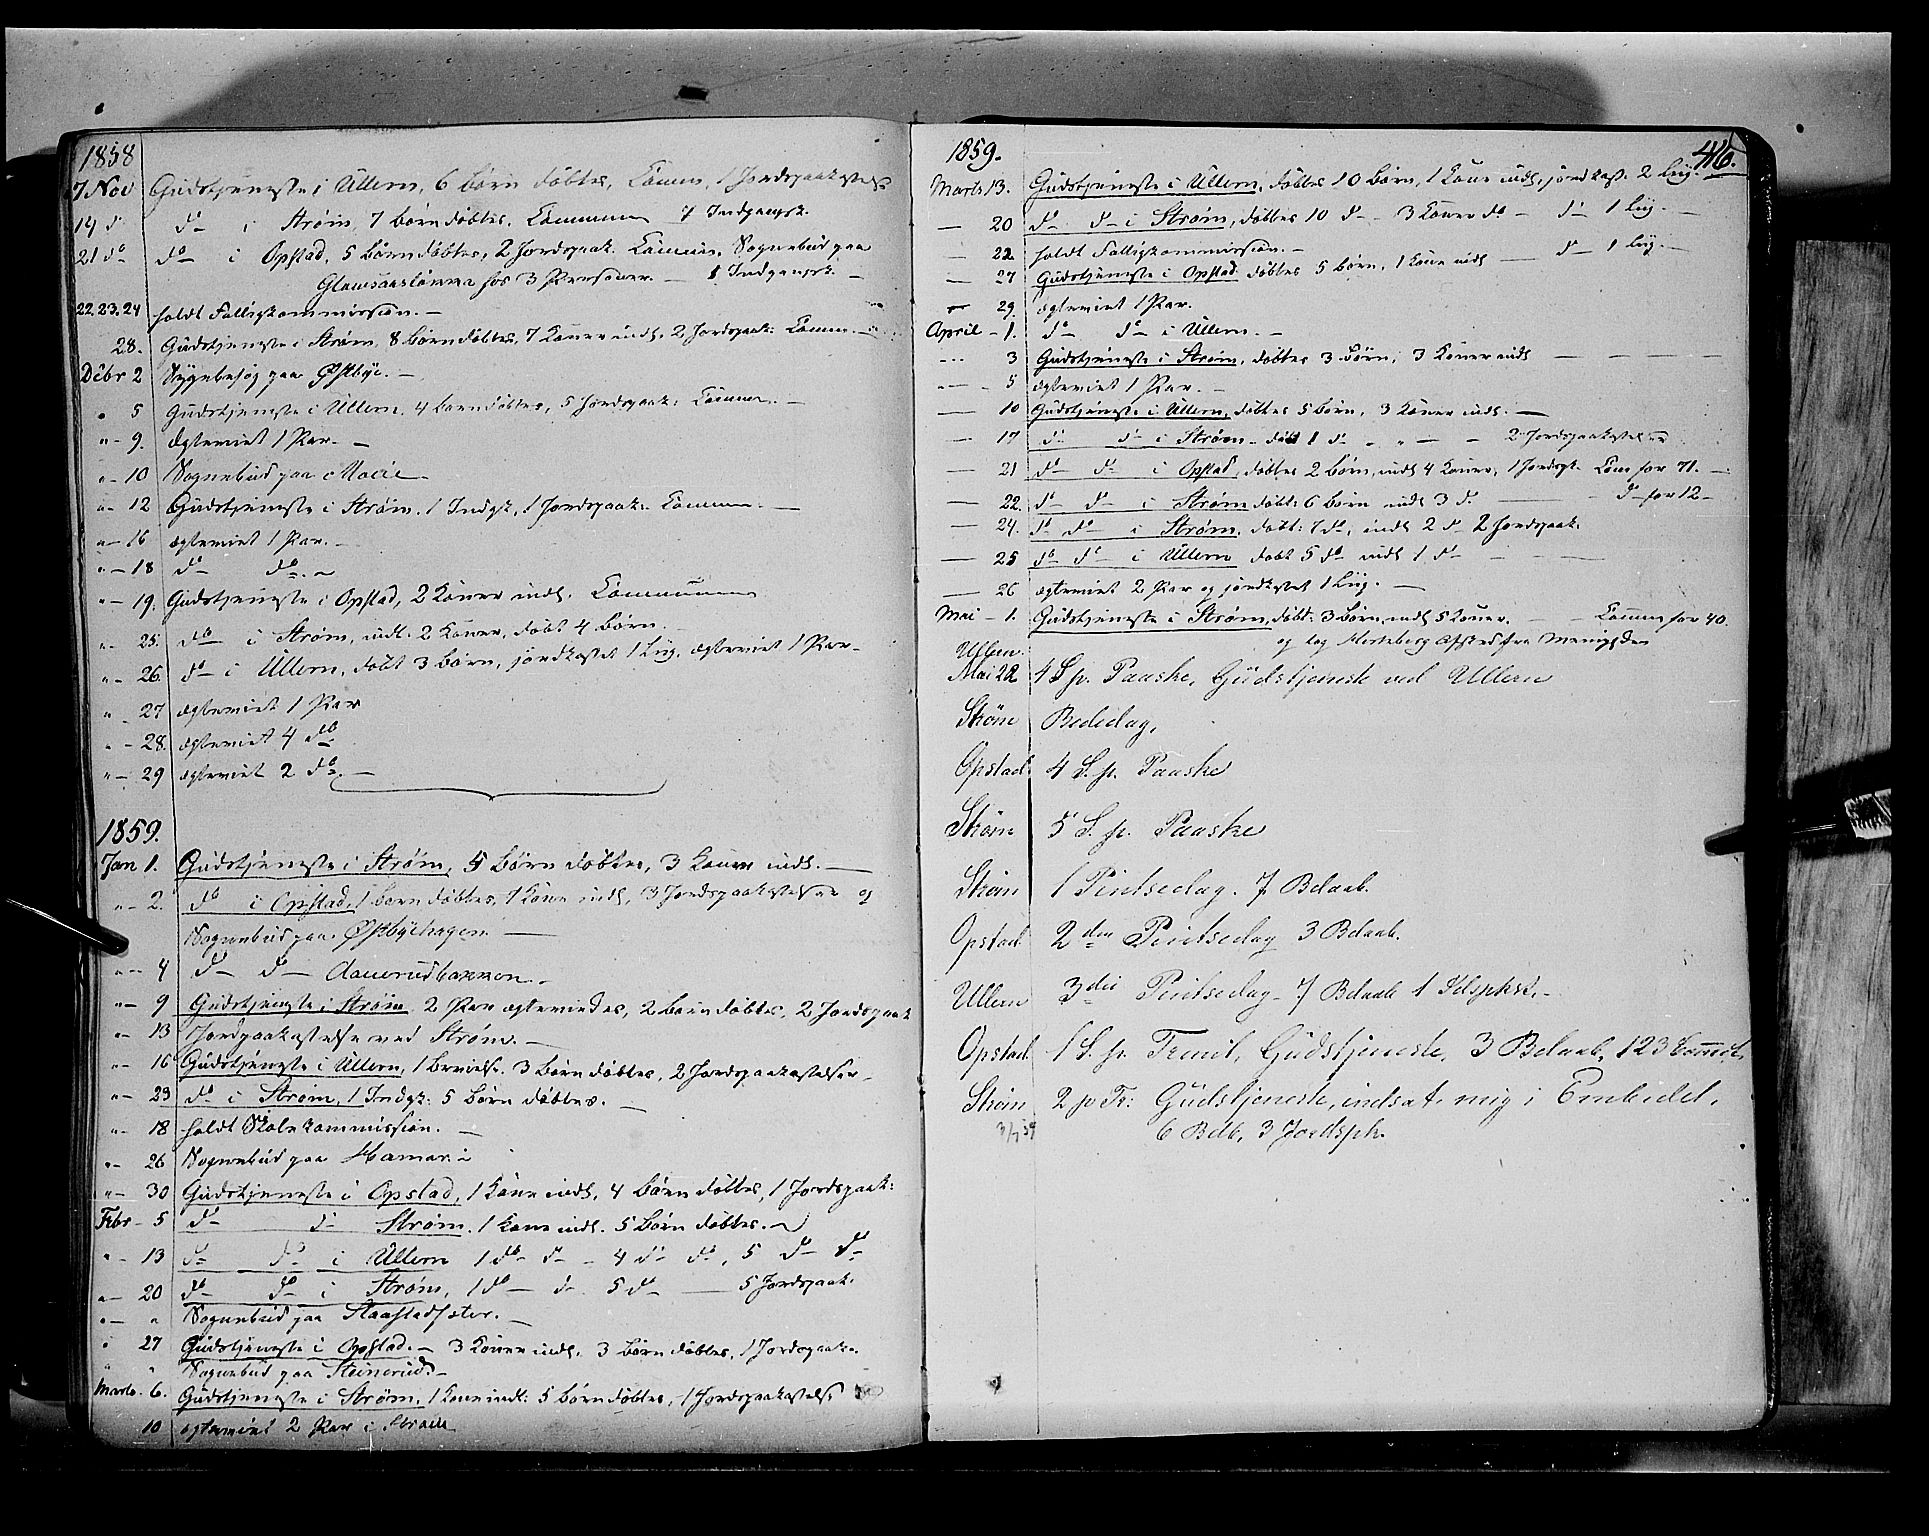 1858
7 Nov Gudstjeneste i Ullern, 6 Børn døbtes, Commun, 1 Jordpaakastelse
14 d° d° i Strøm, 7 Børn døbtes, Commun 7 Indgangsk.
21 d° d° i Opstad, 5 Børn døbtes, 2 Jordspaak. Commun, Sognebud paa
hos 3 Personer. — 1 Indgangsk. —
22. 23. 24 holdt Fattigkommission. —
28. Gudstjeneste i Strøm, 8 Børn døbtes, 7 Koner indl, 2 Jordspaak: Commun. —
Decbr 2 Sygebesøg paa Østbye. —
" 5 Gudstjeneste i Ullern, 4 Børn døbtes, 5 Jordspaak: Commun. —
" – 9. Ægteviet 1 Par. —
" – 10 Sognebud paa
" – 12 Gudstjeneste i Strøm, 1 Indgk, 1 Jordspaak. Commun. —
" – 16 ægteviet 1 Par. —
" – 18 d° d°. –
" – 19. Gudstjeneste i Opstad, 2 Koner indl. Commun
" – 25. d° i Strøm, indl. 2 Koner, døbt 4 Børn.
" – 26. d° i Ullern, døbt 3 Børn, jordkastet 1 Liig, ægteviet 1 Par –
" – 27 ægteviet 1 Par
" – 28. ægteviet 4 d°
" – 29 ægteviet 2 d°. —
1859.
Jan 1. Gudstjeneste i Strøm, 5 Børn døbtes, 3 Koner indl. —
" – 2. d° i Opstad, 1 Barn døbtes, 1 Kone indl, 3 Jordspaakastelser og
Sognebud paa Østbyehagen —
" – 4 d° d°
" – 9 Gudstjeneste i Strøm 2 Par ægteviedes, 2 Børn døbtes, 2 Jordspaak
" – 13 Jordpaakastelse ved Strøm. —
" – 16 Gudstjeneste i Ullern, 1 3 Børn døbtes, 2 Jordspaakastelser –
" – 23 d° i Strøm, 1 Indgk: 5 Børn døbtes. —
" – 18 holdt Skolekommission. —
" – 26 Sognebud paa Hamar i
" – 30 Gudstjeneste i Opstad, 1 Kone indl, 4 Børn døbtes, 1 Jordspaak:
Febr – 5 d° d° Strøm. 1 Kone indl. 5 Børn døbtes. –
" – 13 d° d° i Ullern 1 d° d° – 4 d° d°, 5 d° d°
" – 20 d° d° i Strøm, 1 d° – d° 5 d° — 5 Jordspaak.
" – " Sognebud paa Staastadsæter. —
" 27 Gudstjeneste i Opstad. – 3 Koner indl. 3 Børn døbtes, 1 Jordspaak.
" " Sognebud paa Steinerud –
Marts. 6. Gudstjeneste i Strøm, 1 Kone indl: 5 Børn døbtes, 1 Jordspaakastelse
10 ægteviet 2 Par i Strøm
1859. 416.
Marts 13. Gudstjeneste i Ullern, døbtes 10 Børn, 1 Kone indl, jordkast. 2 Liig.
— 20 d° d° i Strøm, døbtes 10 d° – 3 Koner d° – d° 1 Liig. —
— 22. holdt Fattigkommission. – d° – 1 Liig. —
— 27 Gudstjeneste i Opstad døbtes 5 Børn, 1 Kone indl
— 29. ægteviet 1 Par.
April – 1. d° d° i Ullern. –
3 Gudstjeneste i Strøm, døbtes 3 Børn, 3 Koner indl — — —
5 ægteviet 1 Par. –
— 10 Gudstjeneste i Ullern, døbtes 5 Børn, 3 Koner indl. —
— 17 d° d° i Strøm – døbt 1 d° – " — – 2 Jordspaakastelser
— 21 d° d° i Opstad, døbtes 2 Børn, indl 4 Koner, 1 Jordspk. Com for 71. –
— 22. d° d° i Strøm døbt: 6 Børn indl 3 d° — – d° for 12 –
— 24. d° d° i Strøm. døbt: 7 d°, indl 2 d° 2 Jordspaak.
— 25 d° d° i Ullern døbt 5 d° indl 1 d° – — —
— 26 ægteviet 2 Par og jordkastet 1 Liig. —
Mai – 1. Gudstjeneste i Strøm, døbt: 3 Børn, indl 5 Koner. — Commun for 40.
og tog Afsked fra Menigheden
Ullern.
Mai 22 4 S p. Paaske, Gudstjeneste ved Ullern
Strøm Bededag,
Opstad 4 S. p. Paaske
Strøm 5 S. p. Paaske
Strøm 1 Pintsedag. 7 Bdaab.
Opstad 2den Pintsedag 3 Bdaab.
Ullern 3die Pintsedag – 7 Bdaab 1 –
Opstad 1 S. p. Trinit, Gudstjeneste, 3 Bdaab, 123
Strøm 2 p Tr: Gudstjeneste, indsat mig i Embedet,
3/7 59 6 Bdb, 3 Jordspk.